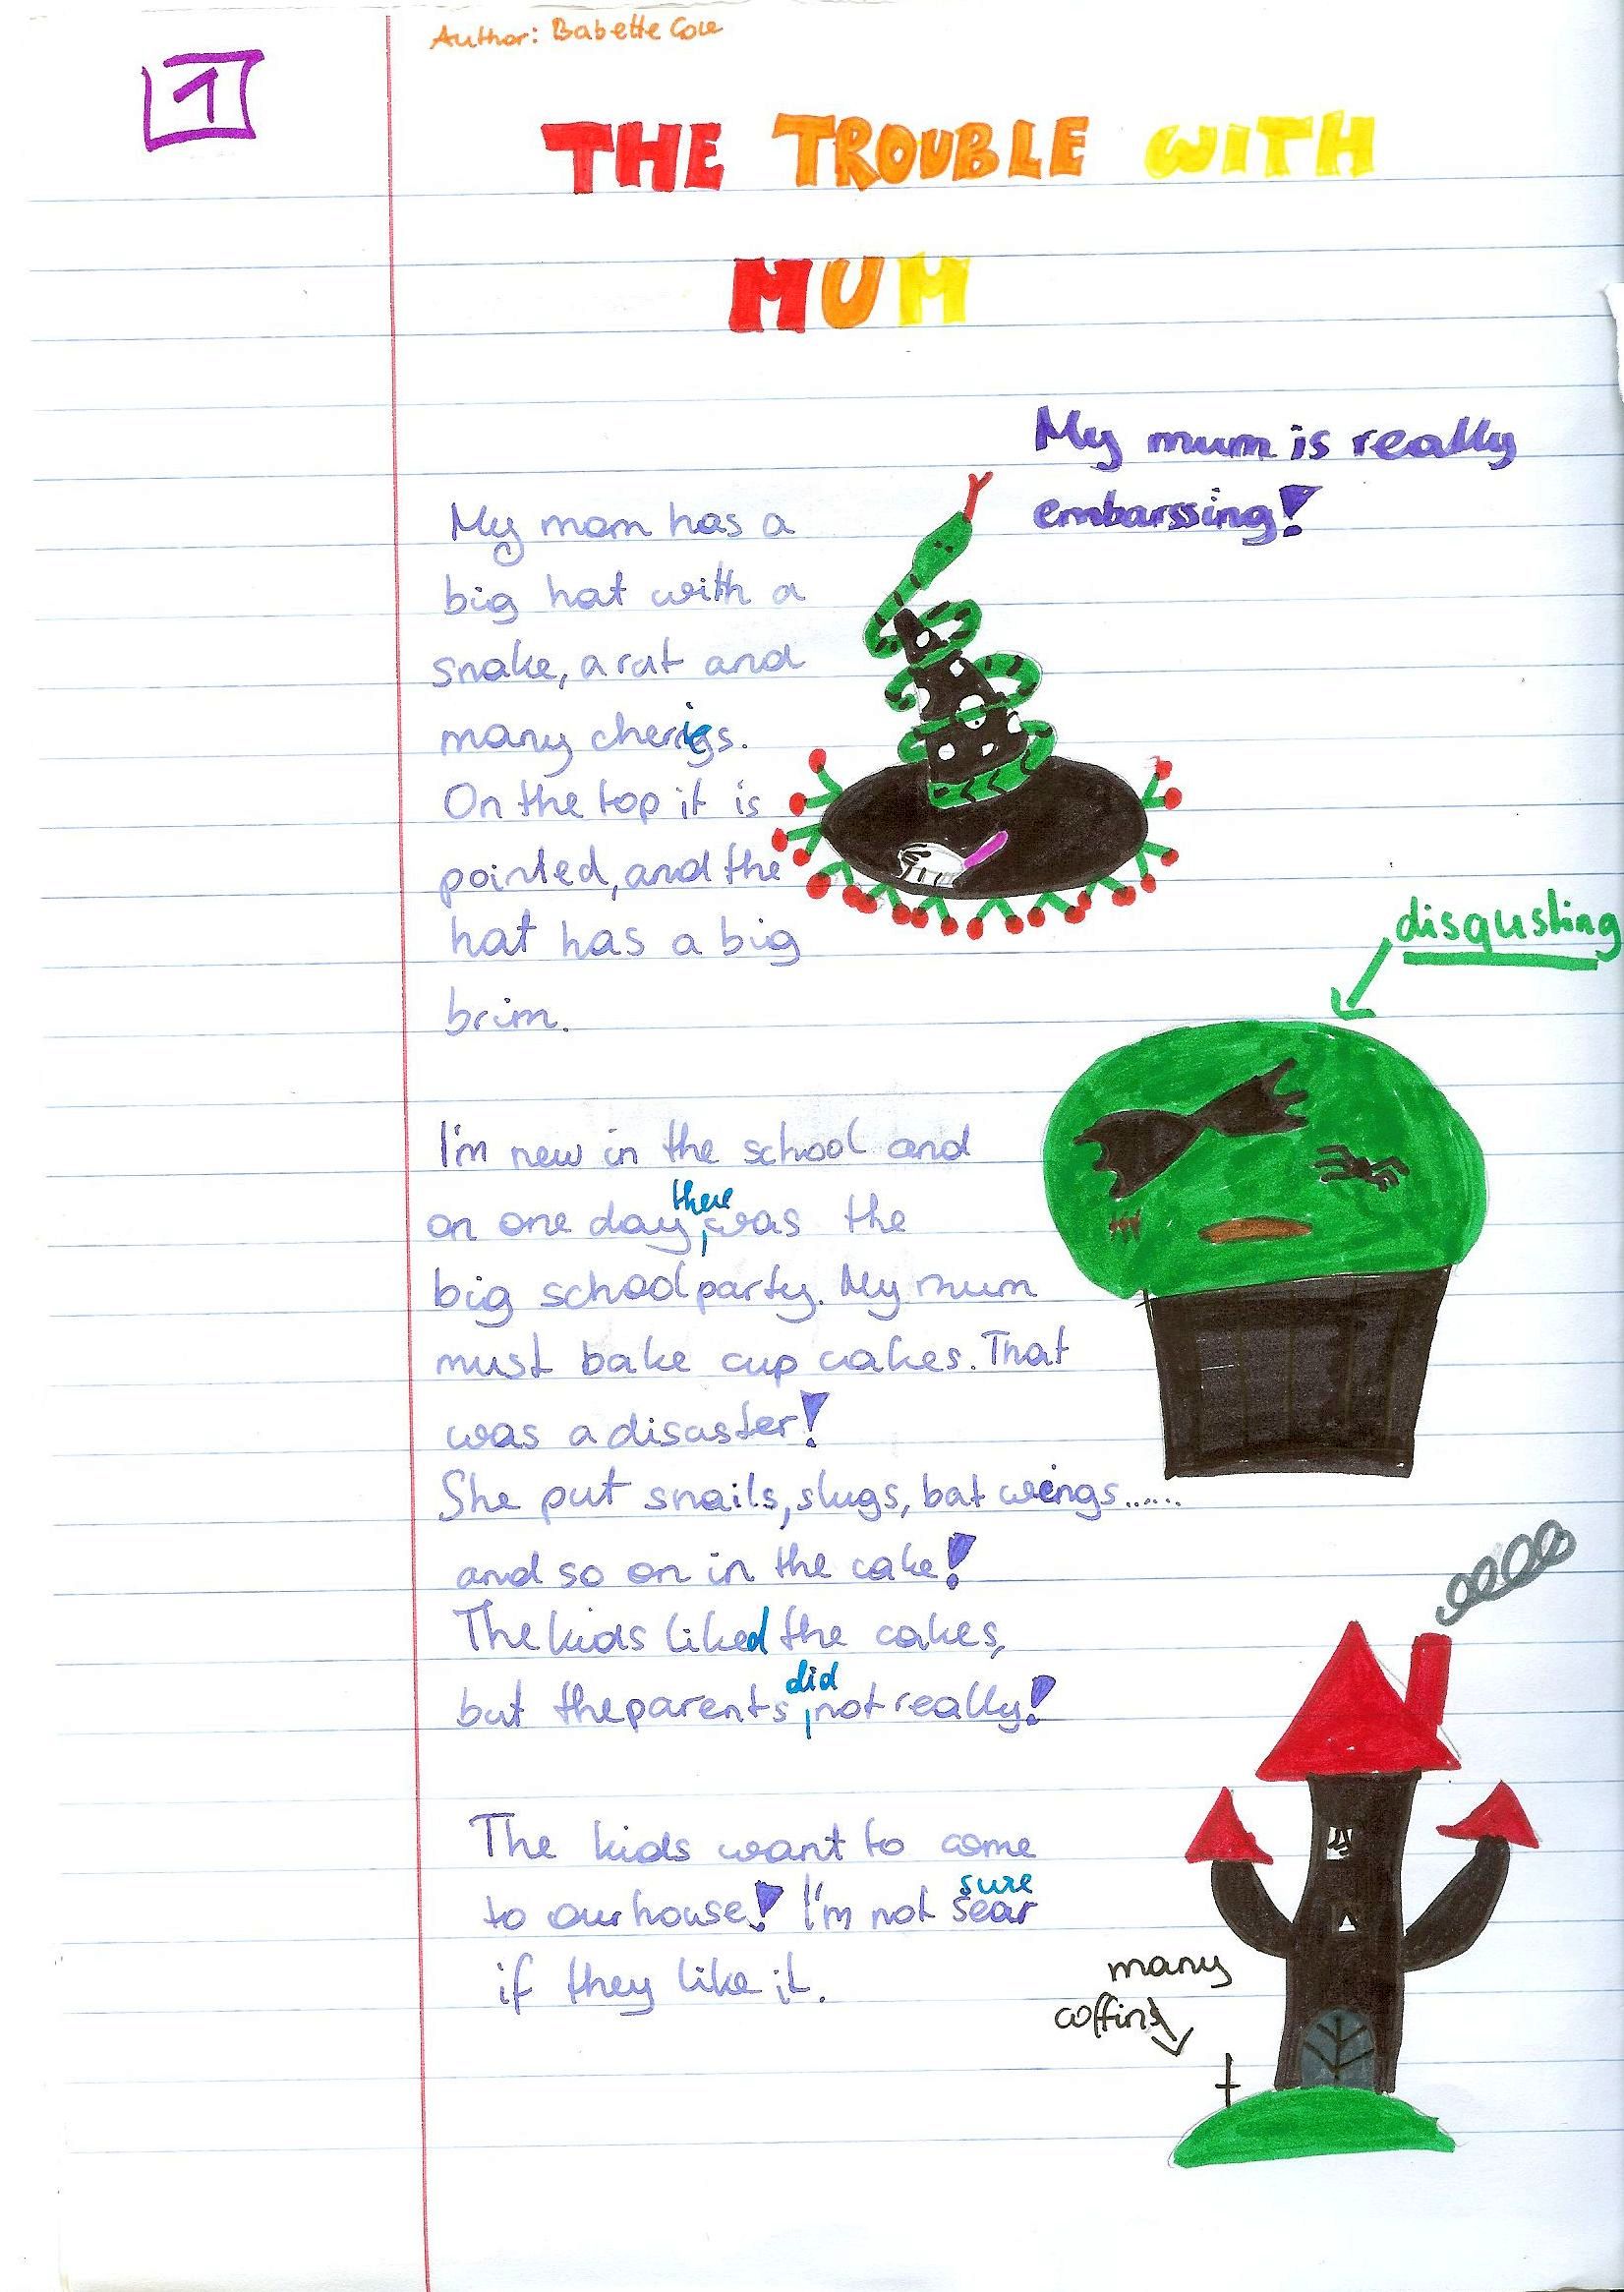 Author: Babette Cole
1
THE TROUBLE WITH
MUM
My mum is really
embarssing!
My mom has a
big hat with a
snake, a rat and
many cheries.
On the top it is
pointed, and the
hat has a big
brim.
disgusting
I'm new in the school and
there
on one day was the
big schoolparty. My mum
must bake cup cakes. That
was a disaster!
She put snails, slugs, bat wings......
and so on in the cake!
The kids liked the cakes,
did
but the parents not really!
The kids want to come
sure
to our house! I'm not sear
if they like it.
many
coffins